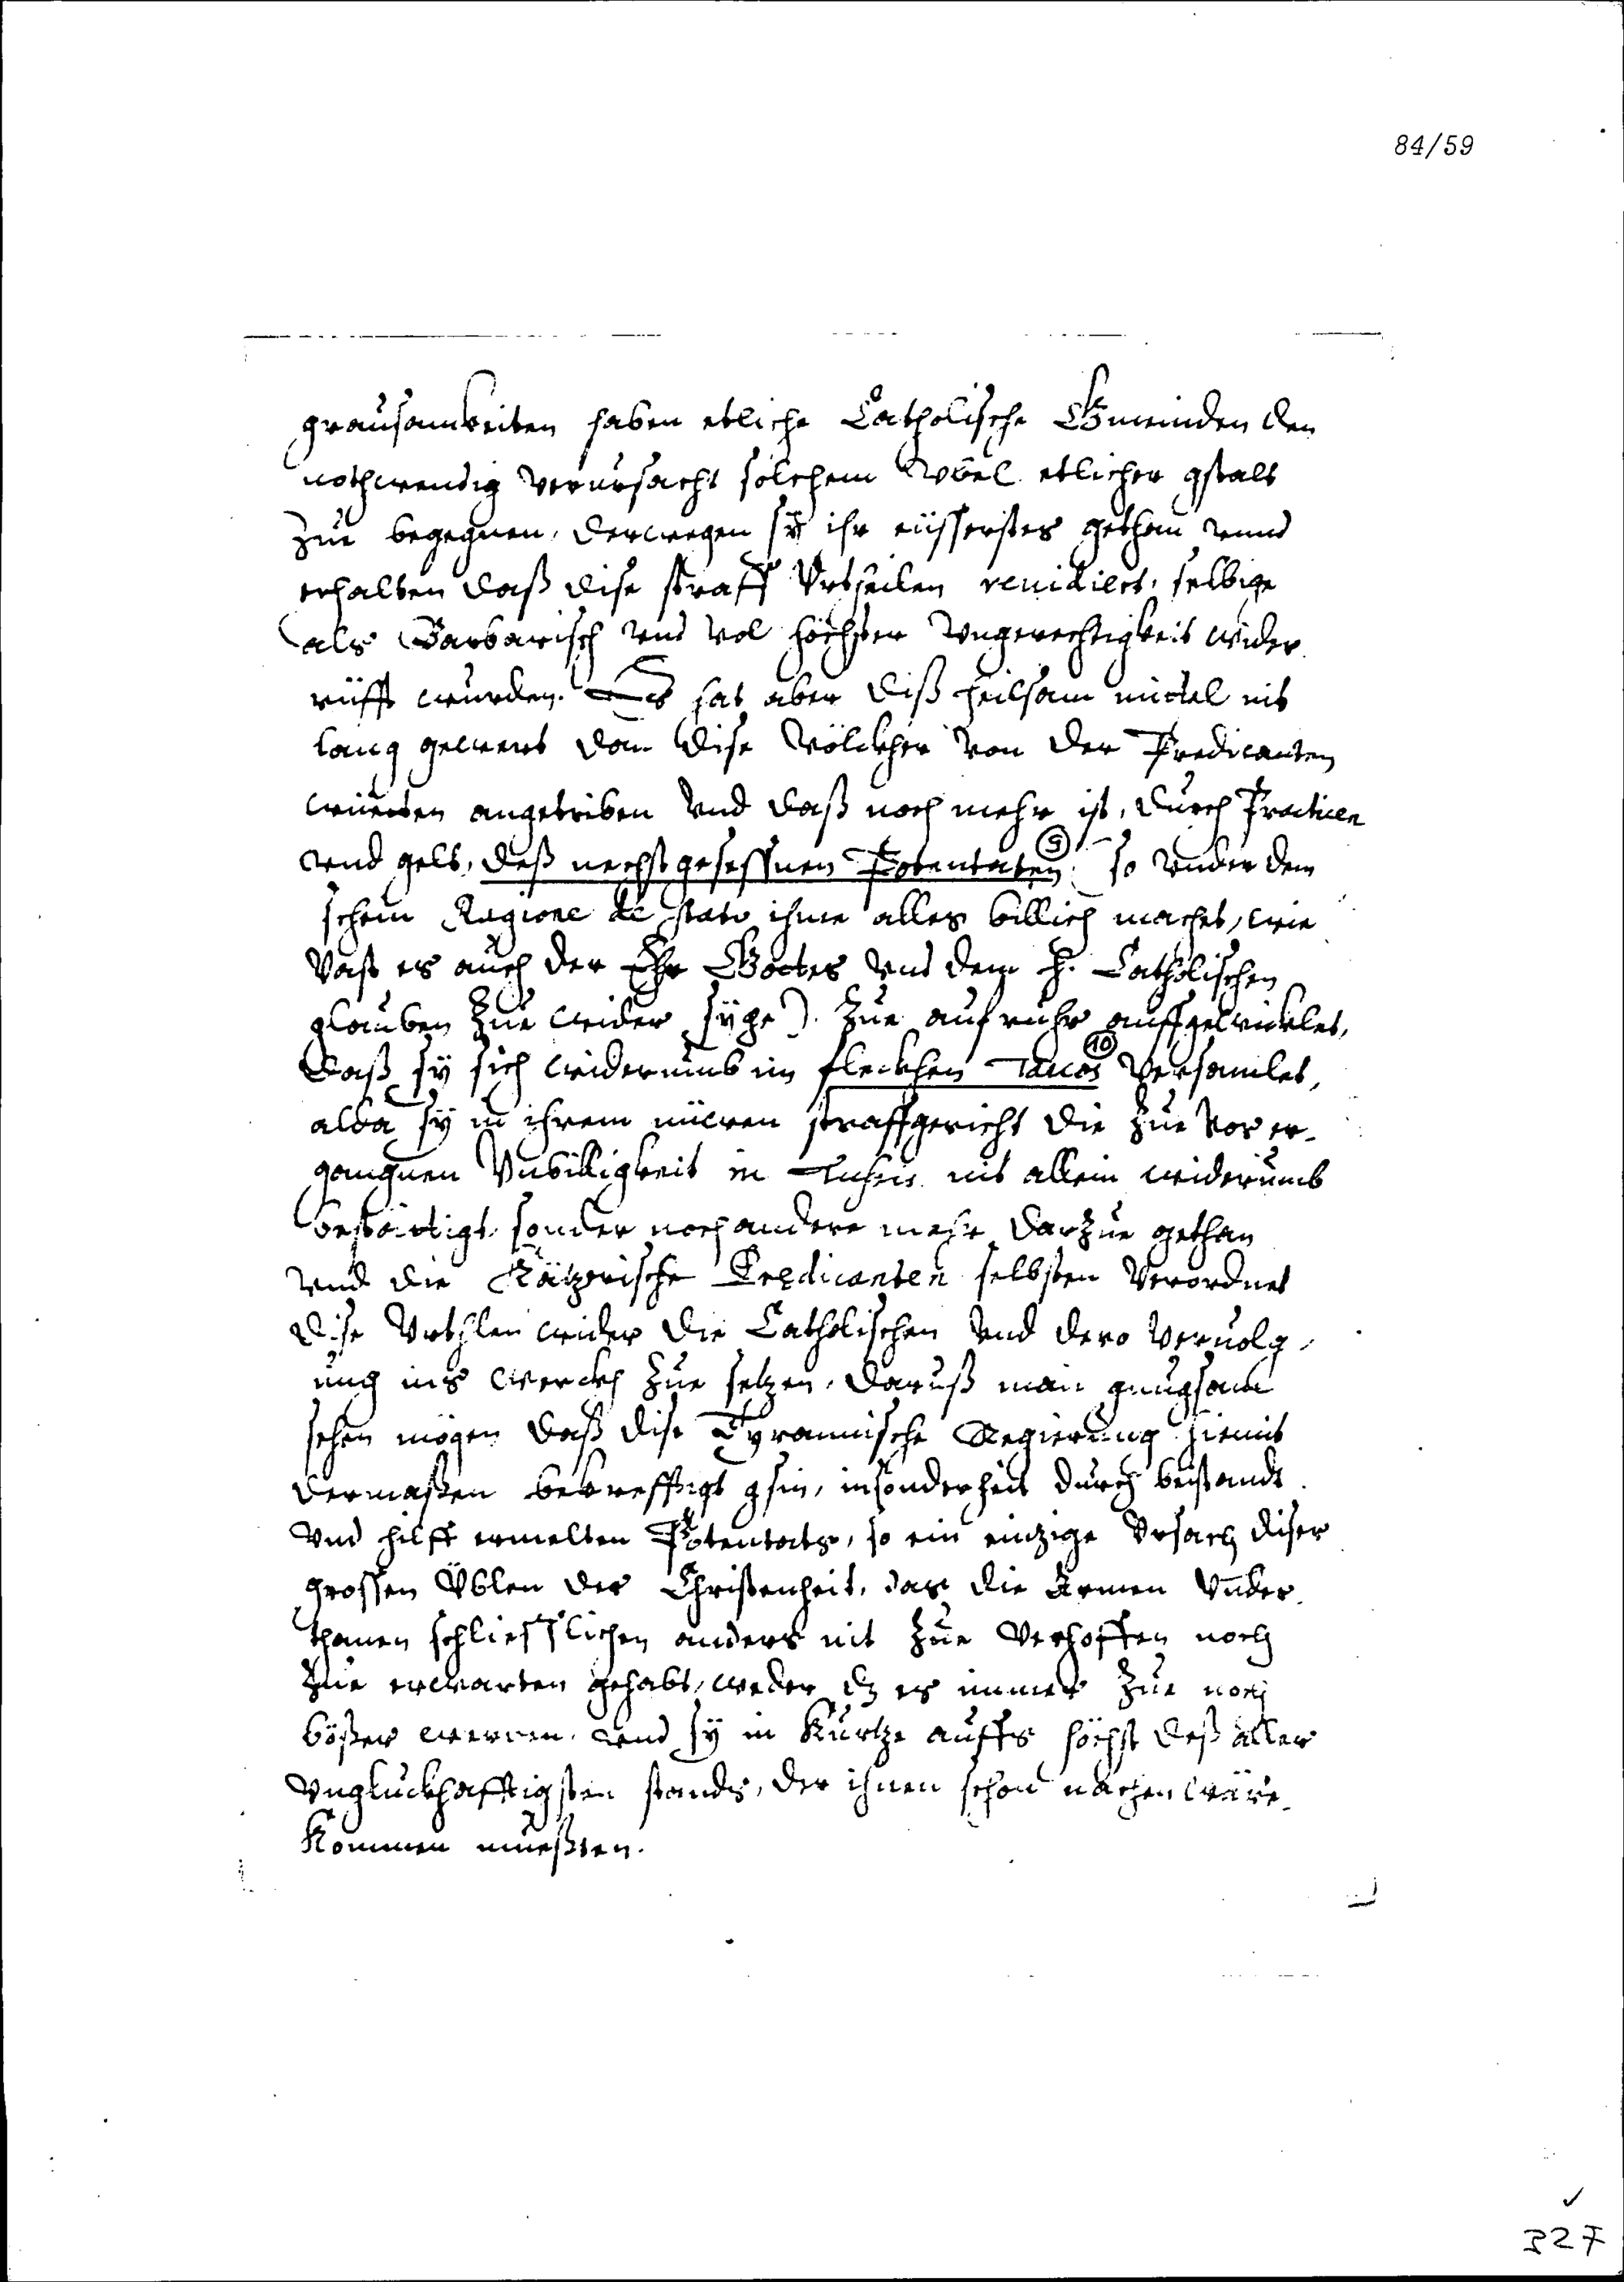 84/59
grausamkeiten haben etliche Catholische Gmeinden den
nothwendig verursacht solchem Vbel etlicher gstalt
zue begegnen, derwegen sÿ ihr eüsserstes gethan vnnd
erhalten daß dise straff Vrtheilen reuidiert, selbige
als Barbarisch vnd vol höchster Vngerechtigkeit wider
rüfft wurden. Es hat aber diß heilsam mittel nit
lang gewert dan dise Völckher von der Predicanten
wurden angetriben Vnd daß noch mehr ist, durch Practicen
vnd gelt, deß nechst gesessnen Potentaten 9 so vnder dem
schein Ragione de stato ihme alles billich machet, wie
Vast es auch der Ehr Gottes vnd dem H. Catholischen
glauben zue wider sÿge). zue aufruhr auffgewicklet,
daß sÿ sich widerumb im fleckhen Tauos 10 Versamlet,
alda sÿ in ihrem nüwen straffgericht die zue vor er-
gangnen Vnbilligkeit in Tusis nit allein widerumb
bestättigt sonder noch andere mehr darzue gethan
vnd die Kätzerische Predicanten selbsten Verordnet
dise Vrthlen wider die Catholischen vnd dero Veruolg-
ung ins werckh zue setzen, daruß man gnugsam
sehen mögen daß dise Tyrannische Regierung hiemit
dermaßen bekrefftigt gsin, insonderheit durch beistandt
vnd hilff ermelten Potentats, so ein einzige Vrsach diser
grossen Üblen der Christenheit, das die Armen Vnder
thanen schliesslichen anders nit zue Verhoffen noch
zue erwarten gehabt, weder dz es immer zue noch
bößer werden, vnd sÿ in Kurtze auffs höchst deß aller
Vngluckhafftigsten stands, der ihnen schon nachen wäre
Kommen mueßten.
327